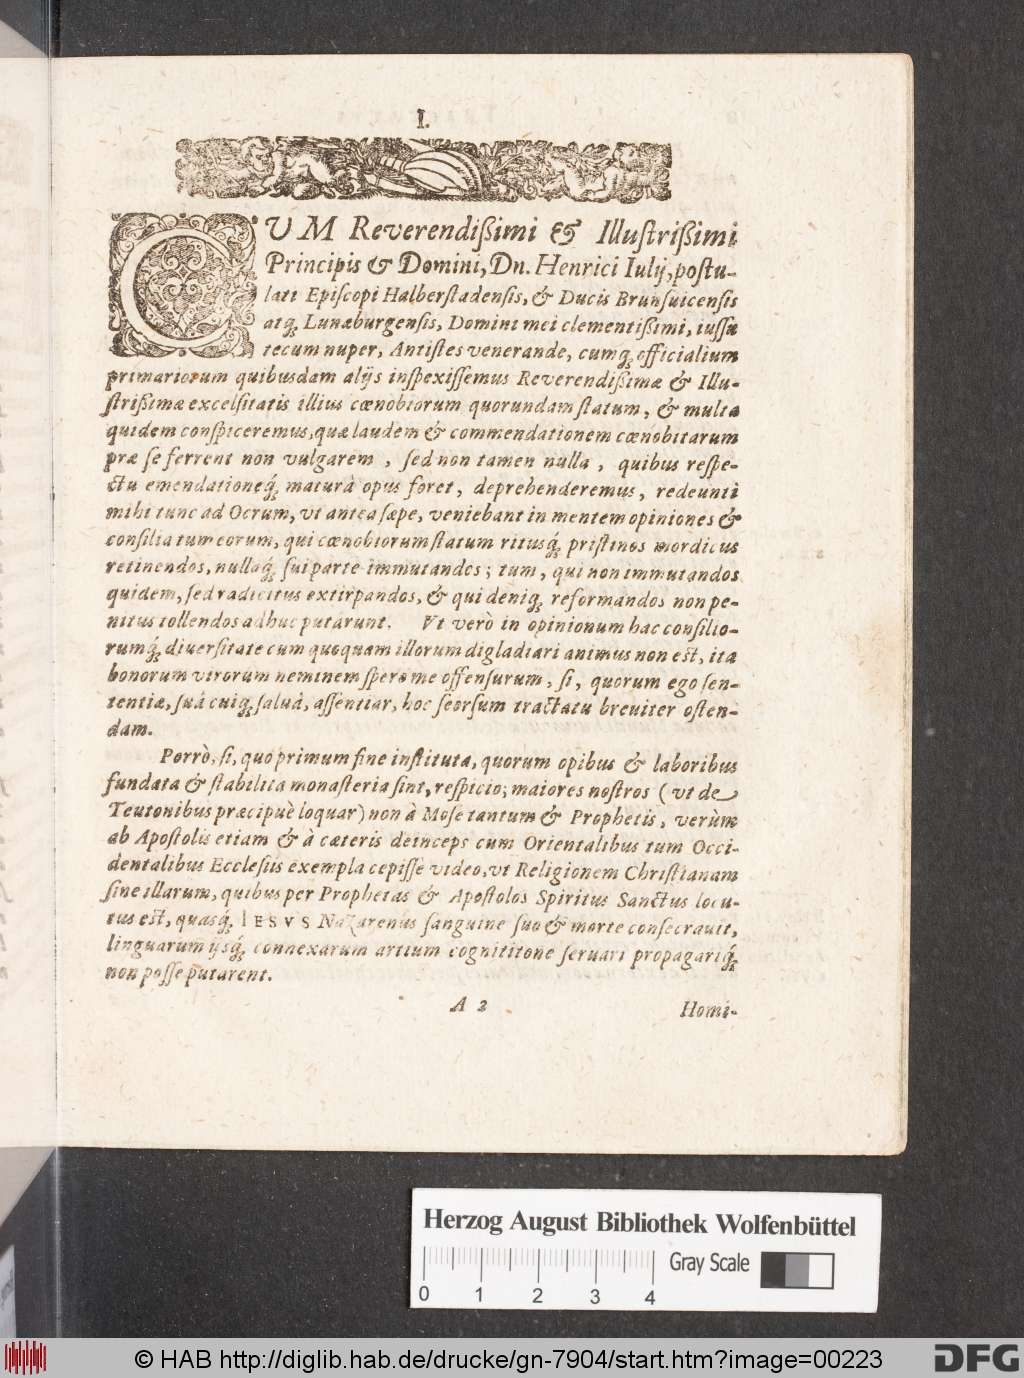 I.
CUM Reverendißimi & Illustrißimi
Principis & Domini, Dn. Henrici Iulij, postu-
lati Episcopi Halberstadensis, & Ducis Brunsuicensis
atq́; Lunæburgensis, Domini mei clementißimi, iussu
tecum nuper, Antistes venerande, cumq́; officialium
primariorum quibusdam alijs inspexissemus Reverendißimæ & Illu-
strißimæ excelsitatis illius cœnobiorum quorundam statum, & multa
quidem conspiceremus, quæ laudem & commendationem cœnobitarum
præ se ferrent non vulgarem, sed non tamen nulla, quibus respe-
ctu emendationeq́; maturà opus foret, deprehenderemus, redeunti
mihi tunc ad Ocrum, vt antea sæpe, veniebant in mentem opiniones &
consilia tum eorum, qui cœnobiorum statum ritusq́; pristinos mordicus
retinendos, nullaq́; sui parte immutandos; tum, qui non immutandos
quidem, sed radicitus extirpandos, & qui deniq́; reformandos non pe-
nitus tollendos adhuc putarunt. Vt verò in opinionum hac consilio-
rumq́; diuersitate cum quoquam illorum digladiari animus non est, ita
bonorum virorum neminem spero me offensurum, si, quorum ego sen-
tentiæ, suâ cuiq́; saluâ, assentiar, hoc seorsum tractatu breuiter osten-
dam.
Porrò, si, quo primum fine instituta, quorum opibus & laboribus
fundata & stabilita monasteria sint, respicio; maiores nostros (vt de
Teutonibus præcipuè loquar) non à Mose tantum & Prophetis, verùm
ab Apostolis etiam & à cæteris deinceps cum Orientalibus tum Occi-
dentalibus Ecclesiis exempla cepisse video, vt Religionem Christianam
sine illarum, quibus per Prophetas & Apostolos Spiritus Sanctus locu-
tus est, quasq́; IESVS Nazarenus sanguine suo & morte consecrauit,
linguarum ijsq́; connexarum artium cognititone seruari propagariq́;
non posse putarent.
A 2 Homi-
Herzog August Bibliothek Wolfenbüttel
Gray Scale
0 1 2 3 4
© HAB http://diglib.hab.de/drucke/gn-7904/start.htm?image=00223
DFG